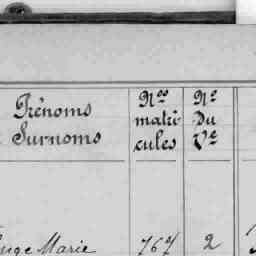 Prénoms
Surnoms
Nos
matri
cules
No
Du
Ve
Marie 767 2